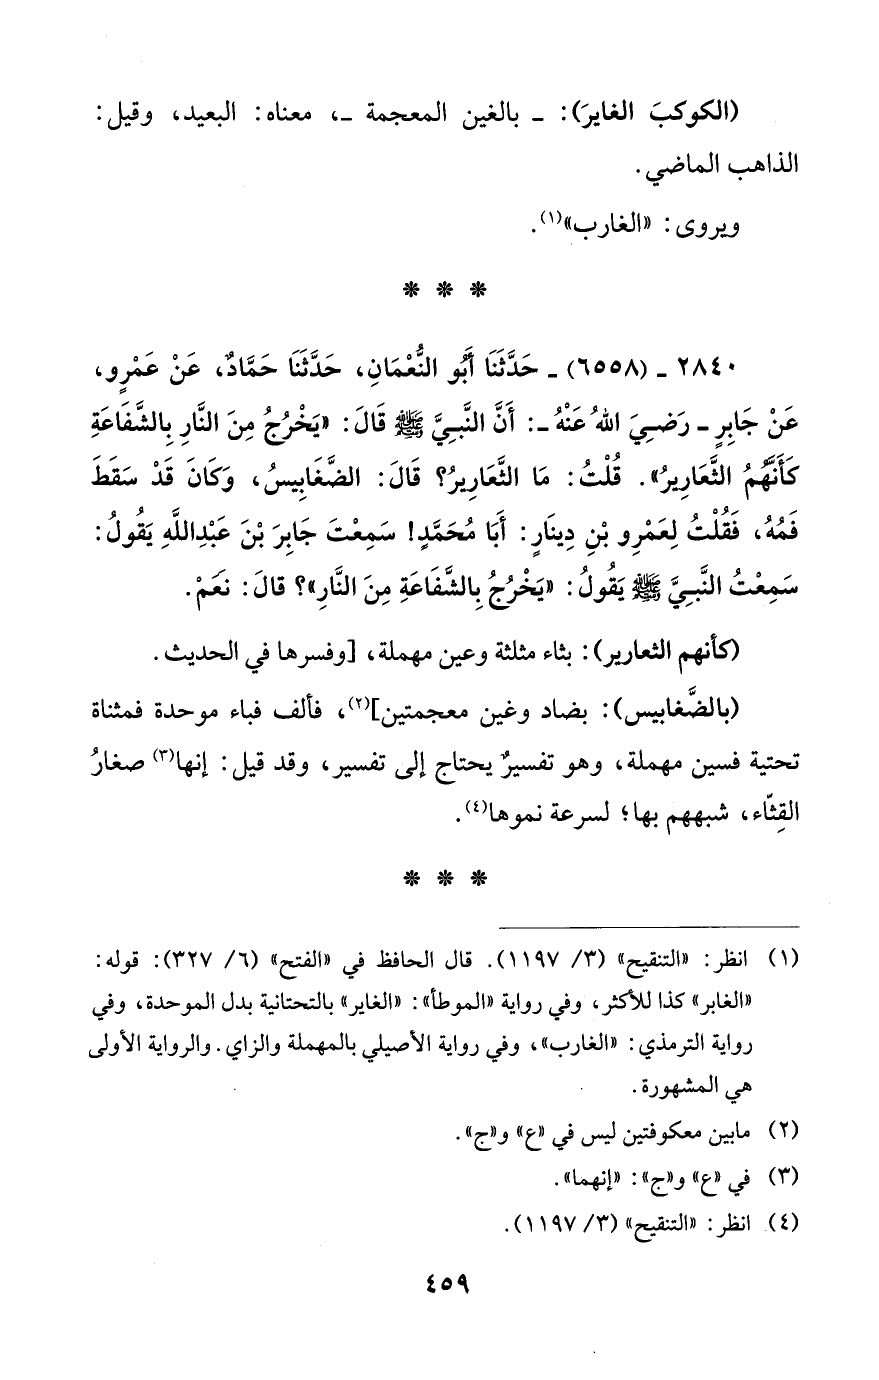 (الكوكبَ الغايرَ): ـ بالغين المعجمة ـ، معناه: البعيد، وقيل:
الذاهب الماضي.
ويروى: «الغارب»(١).
* * *
٢٨٤٠ ـ (٦٥٥٨) ـ حَدَّثَنَا أَبُو النُّعْمَانِ، حَدَّثَنَا حَمَّادٌ، عَنْ عَمْرٍو،
عَنْ جَابِرٍ ـ رَضِيَ اللهُ عَنْهُ ـ: أَنَّ النَّبِيَّ ﷺ قَالَ: «يَخْرُجُ مِنَ النَّارِ بِالشَّفَاعَةِ
كَأَنَّهُمُ الثَّعَارِيرُ». قُلْتُ: مَا الثَّعَارِيرُ؟ قَالَ: الضَّغَابِيسُ، وَكَانَ قَدْ سَقَطَ
فَمُهُ، فَقُلْتُ لِعَمْرِو بْنِ دِينَارٍ: أَبَا مُحَمَّدٍ! سَمِعْتَ جَابِرَ بْنَ عَبْدِاللَّهِ يَقُولُ:
سَمِعْتُ النَّبِيَّ ﷺ يَقُولُ: «يَخْرُجُ بِالشَّفَاعَةِ مِنَ النَّارِ»؟ قَالَ: نَعَمْ.
(كأنهم الثعارير): بثاء مثلثة وعين مهملة، [وفسرها في الحديث.
(بالضَّغابيس): بضاد وغين معجمتين](٢)، فألف فباء موحدة فمثناة
تحتية فسين مهملة، وهو تفسيرٌ يحتاج إلى تفسير، وقد قيل: إنها(٣) صغارُ
القِثّاء، شبههم بها؛ لسرعة نموها(٤).
* * *
(١) انظر: «التنقيح» (٣/ ١١٩٧). قال الحافظ في «الفتح» (٦/ ٣٢٧): قوله:
«الغابر» كذا للأكثر، وفي رواية «الموطأ»: «الغاير» بالتحتانية بدل الموحدة، وفي
رواية الترمذي: «الغارب»، وفي رواية الأصيلي بالمهملة والزاي. والرواية الأولى
هي المشهورة.
(٢) مابين معكوفتين ليس في «ع» و«ج».
(٣) في «ع» و«ج»: «إنهما».
(٤) انظر: «التنقيح» (٣/ ١١٩٧).
٤٥٩